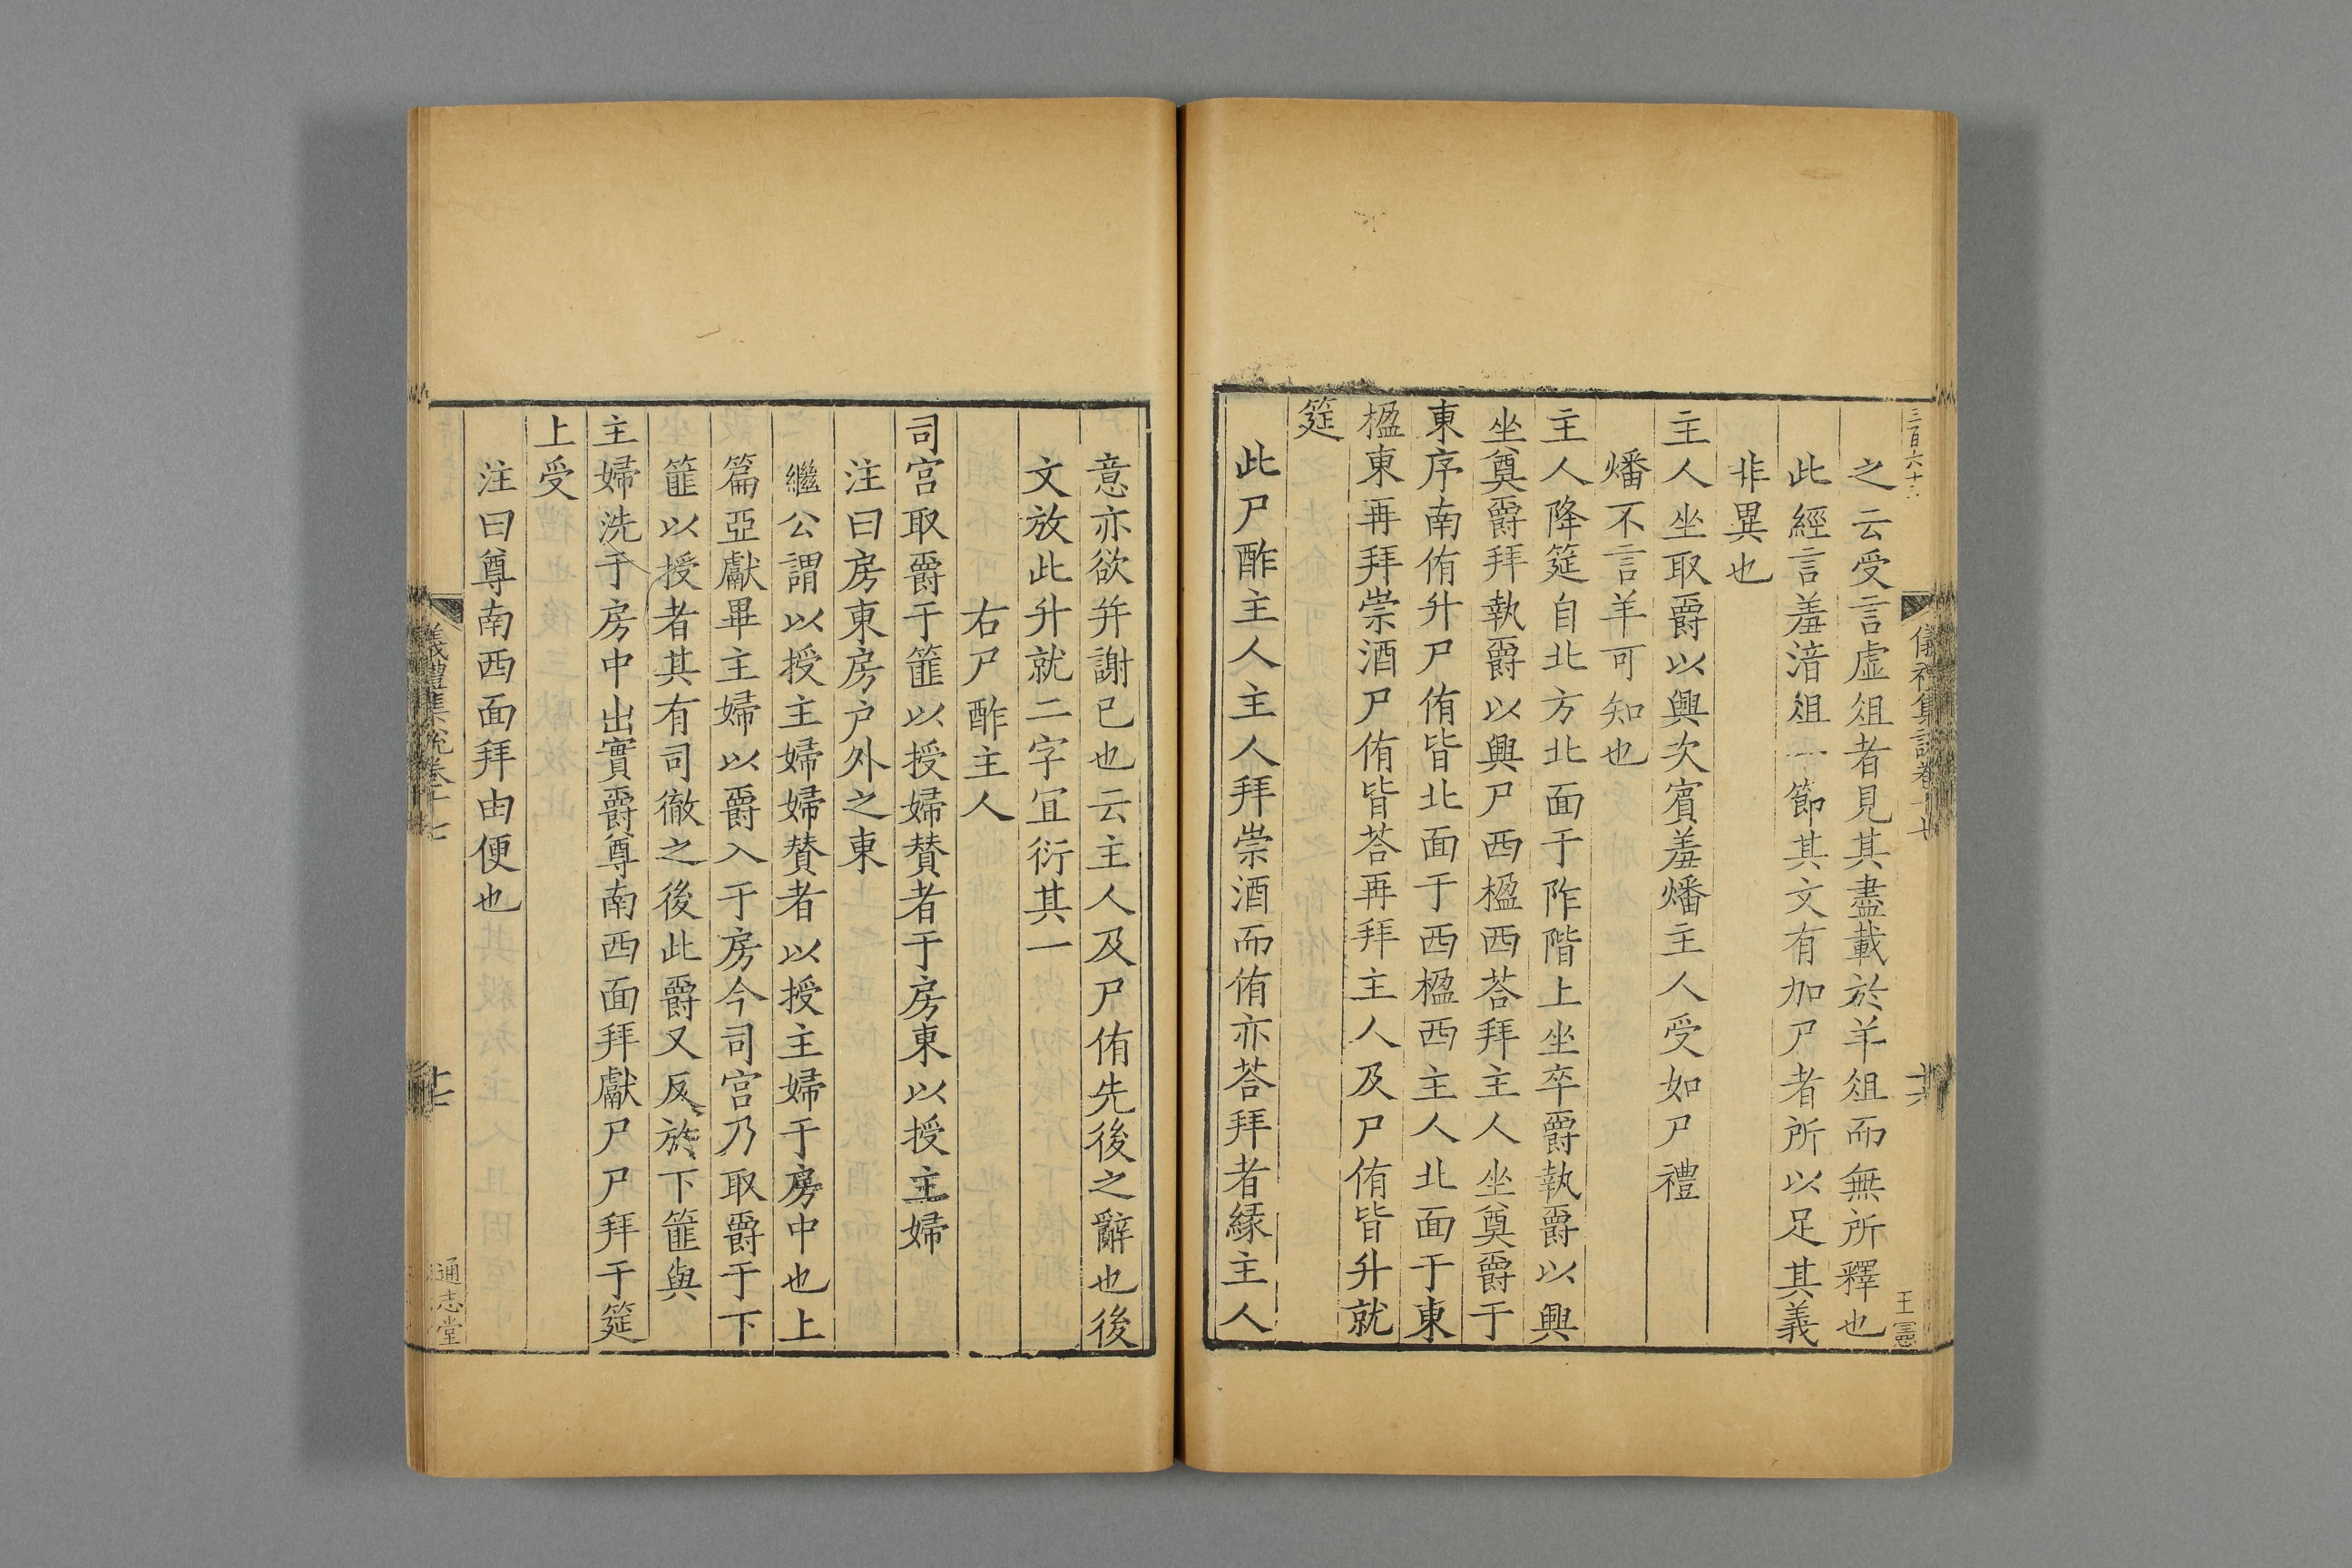 三百六十六
之云受言虛俎者見其盡載於羊俎而無所釋也
此經言羞湆俎一節其文有加尸者所以足其義
非異也
主人坐取爵以興次賓羞燔主人受如尸禮
燔不言羊可知也
主人降筵自北方北面于阼階上坐卒爵執爵以興
坐奠爵拜執爵以興尸西楹西荅拜主人坐奠爵于
東序南侑升尸侑皆北面于西楹西主人北面于東
楹東再拜崇酒尸侑皆荅再拜主人及尸侑皆升就
筵
此尸酢主人主人拜崇酒而侑亦荅拜者緣主人
意亦欲并謝已也云主人及尸侑先後之辭也後
文放此升就二字宜衍其一
右尸酢主人
司宫取爵于篚以授婦贊者于房東以授主婦
注曰房東房户外之東
繼公謂以授主婦婦贊者以授主婦于房中也上
篇亞獻畢主婦以爵入于房今司宫乃取爵于下
篚以授者其有司徹之後此爵又反於下篚與
主婦洗于房中出實爵尊南西面拜獻尸尸拜于筵
上受
注曰尊南西面拜由便也
儀禮集說卷十七
十七
通志堂